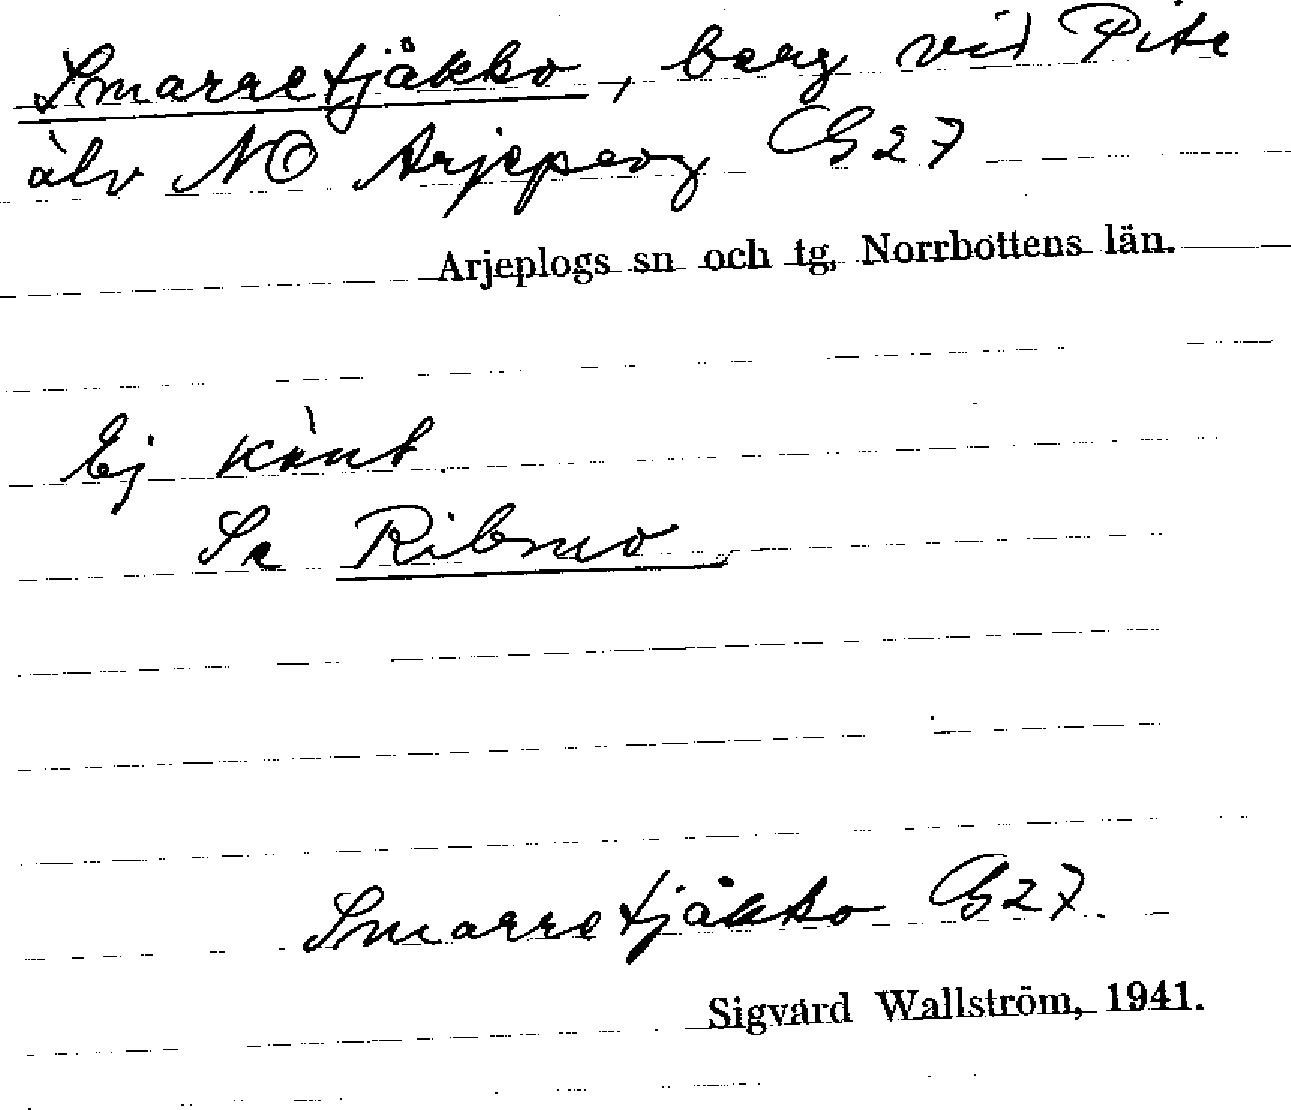 Smarretjåkko, berg vid Pite
älv NO Arjeplog G27
Arjeplogs sn och tg, Norrbottens län.
Ej känt
Se Ribmo
Smarretjåkko G27
Sigvard Wallström, 1941.